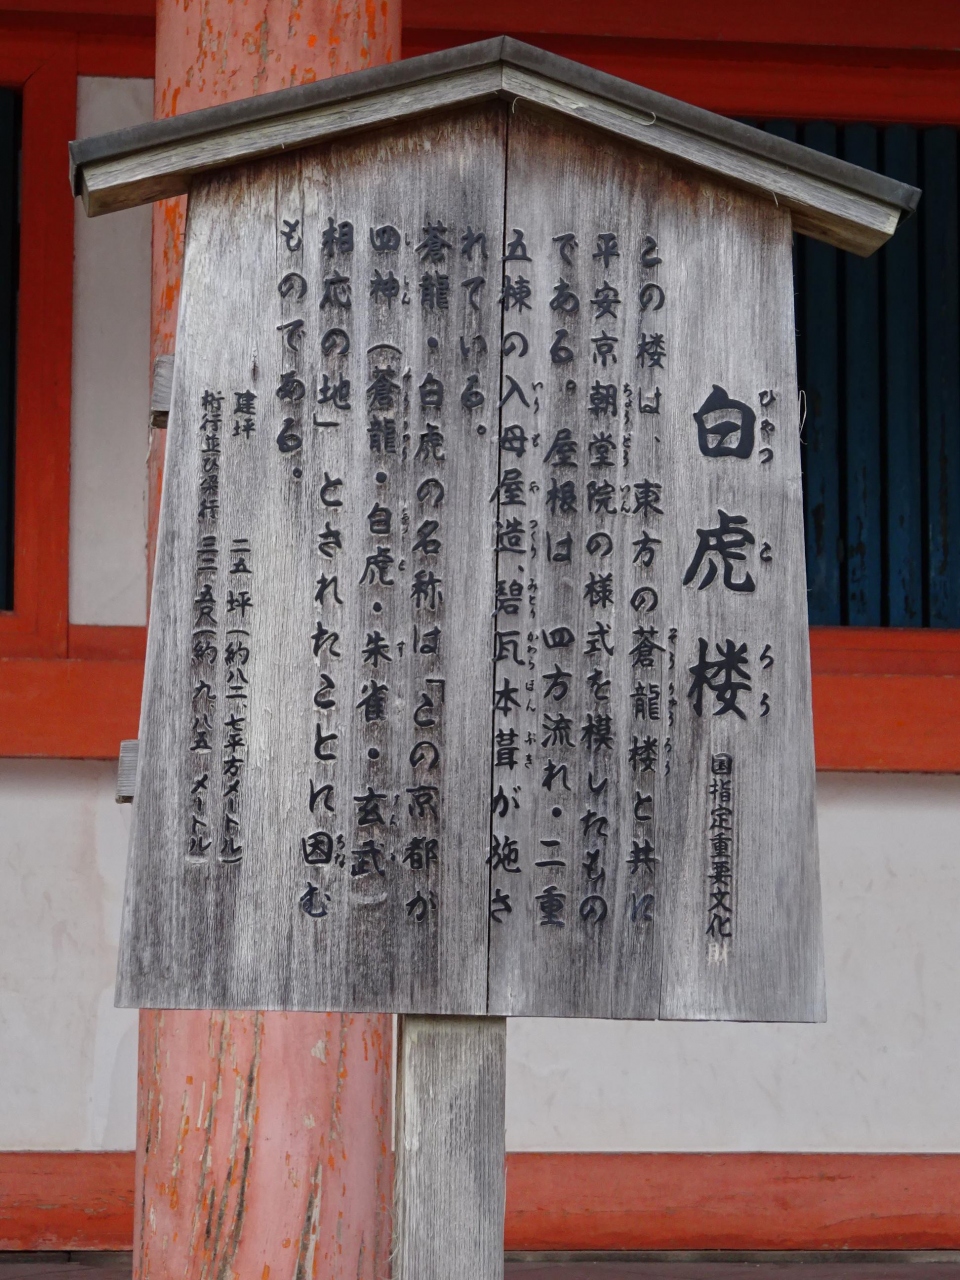 白虎楼 国指定重要文化財
この楼は、東方の蒼龍楼と共に
平安京朝堂院の様式を模したもの
である。屋根は 四方流れ・二重
五棟の入母屋造、碧瓦本葺が施さ
れている。
蒼龍・白虎の名称は「この京都が
四神(蒼龍・白虎・朱雀・玄武)
相応の地」とされたことに因む
ものである。
建坪 二五坪(約八二、七平方メートル)
桁行並び梁行 三二、五尺(約 九、八五 メートル